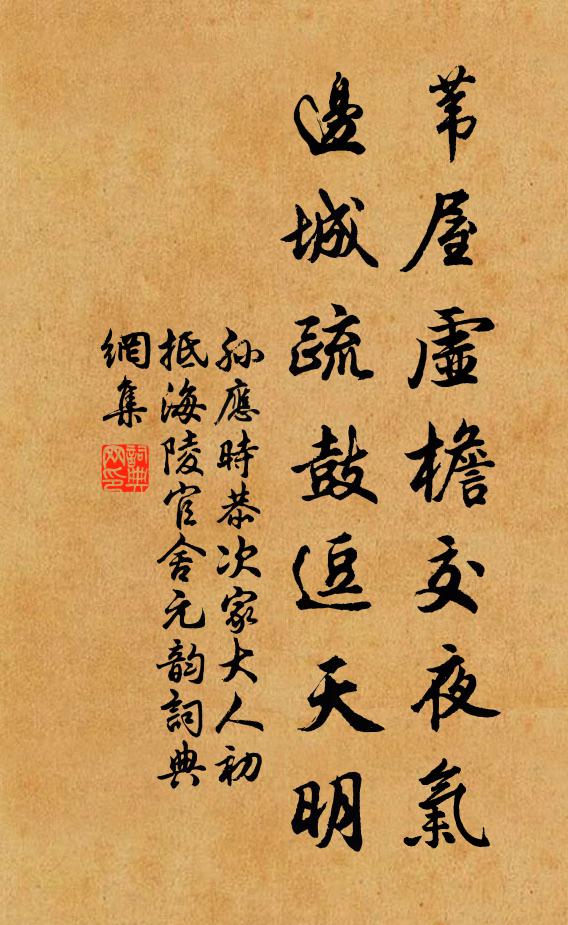 苇屋虛檐交夜氣
邊城疏鼓逗天明
孫應時恭次家大人初
抵海陵官舍元韵詞典
網集
詞典
网印